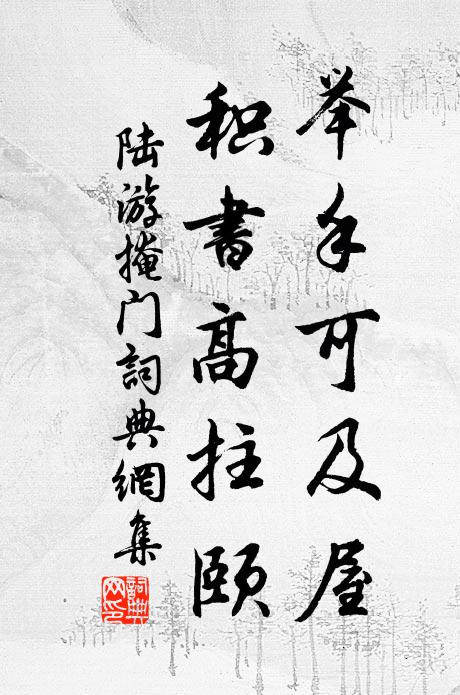 举手可及屋
积书高拄颐
陆游掩门詞典網集
詞典网印